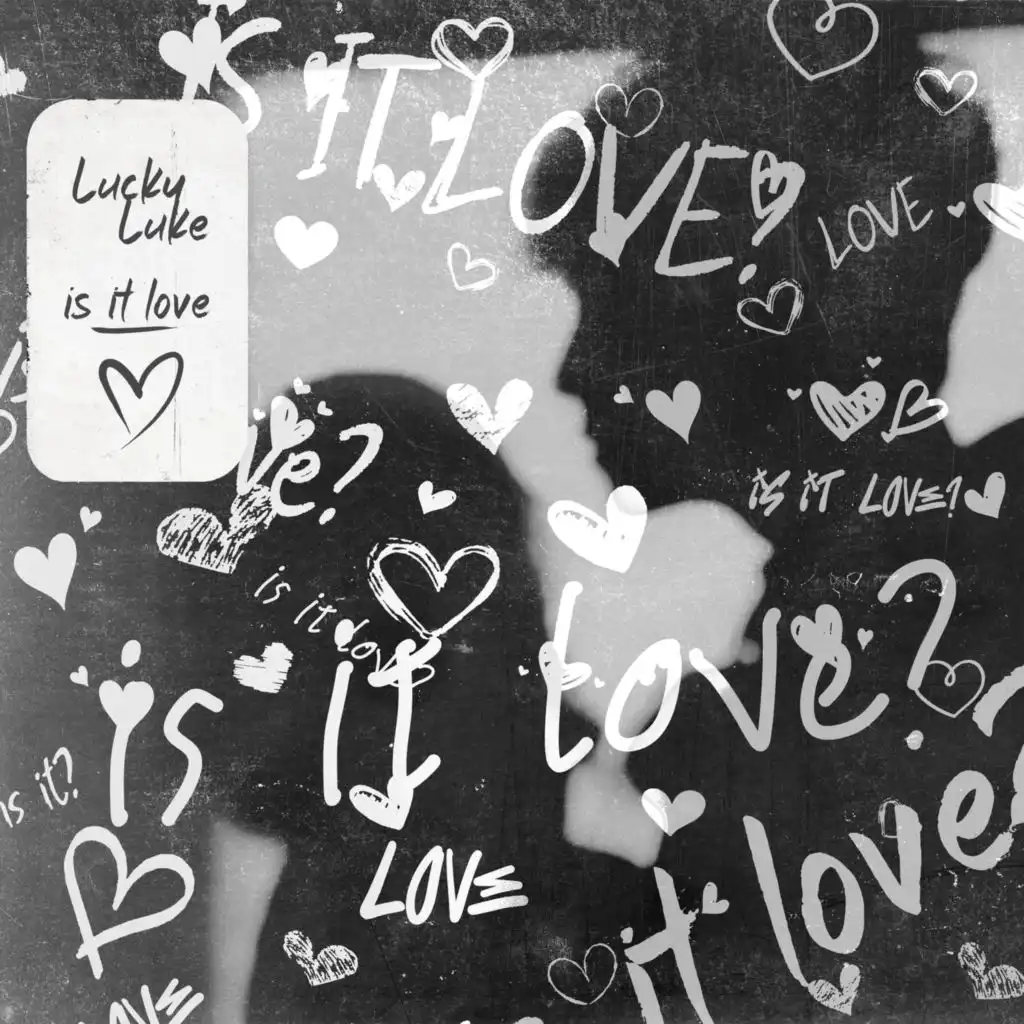 is IT LOVE?
LOVE
Lucky
Luke
is it love
ve?
is it love?
is it love
is it love?
is it?
it love
LOVE
LOVE